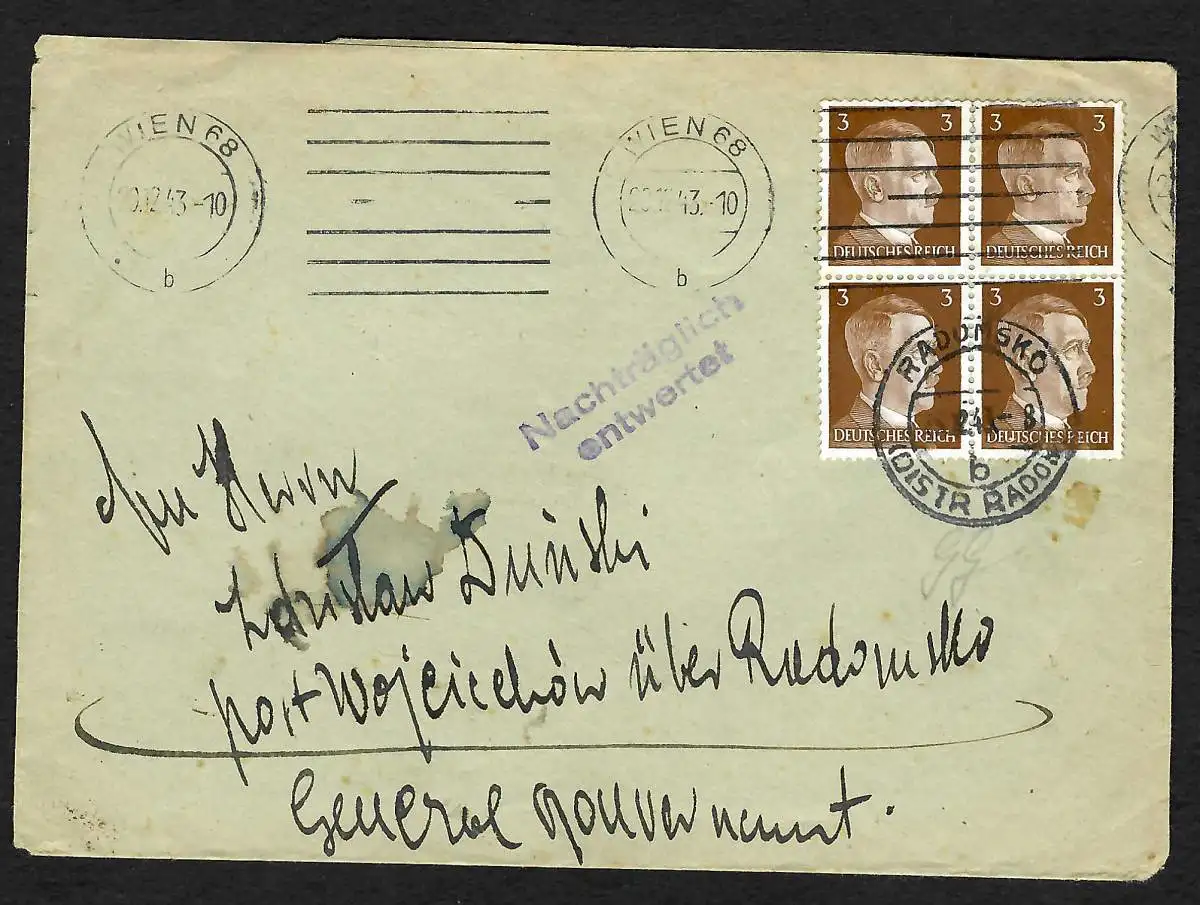 WIEN 68
20.12.43.-10
b
WIEN 68
20.12.43.-10
b
3 3
DEUTSCHES REICH
3 3
DEUTSCHES REICH
3 3
DEUTSCHES REICH
3 3
DEUTSCHES REICH
RADOMSKO
b
(DISTR RADOM
Nachträglich
entwertet
An Herrn
Zdzisław Duński
post Wojciechów über Radomsko
General gouvernement.
GG